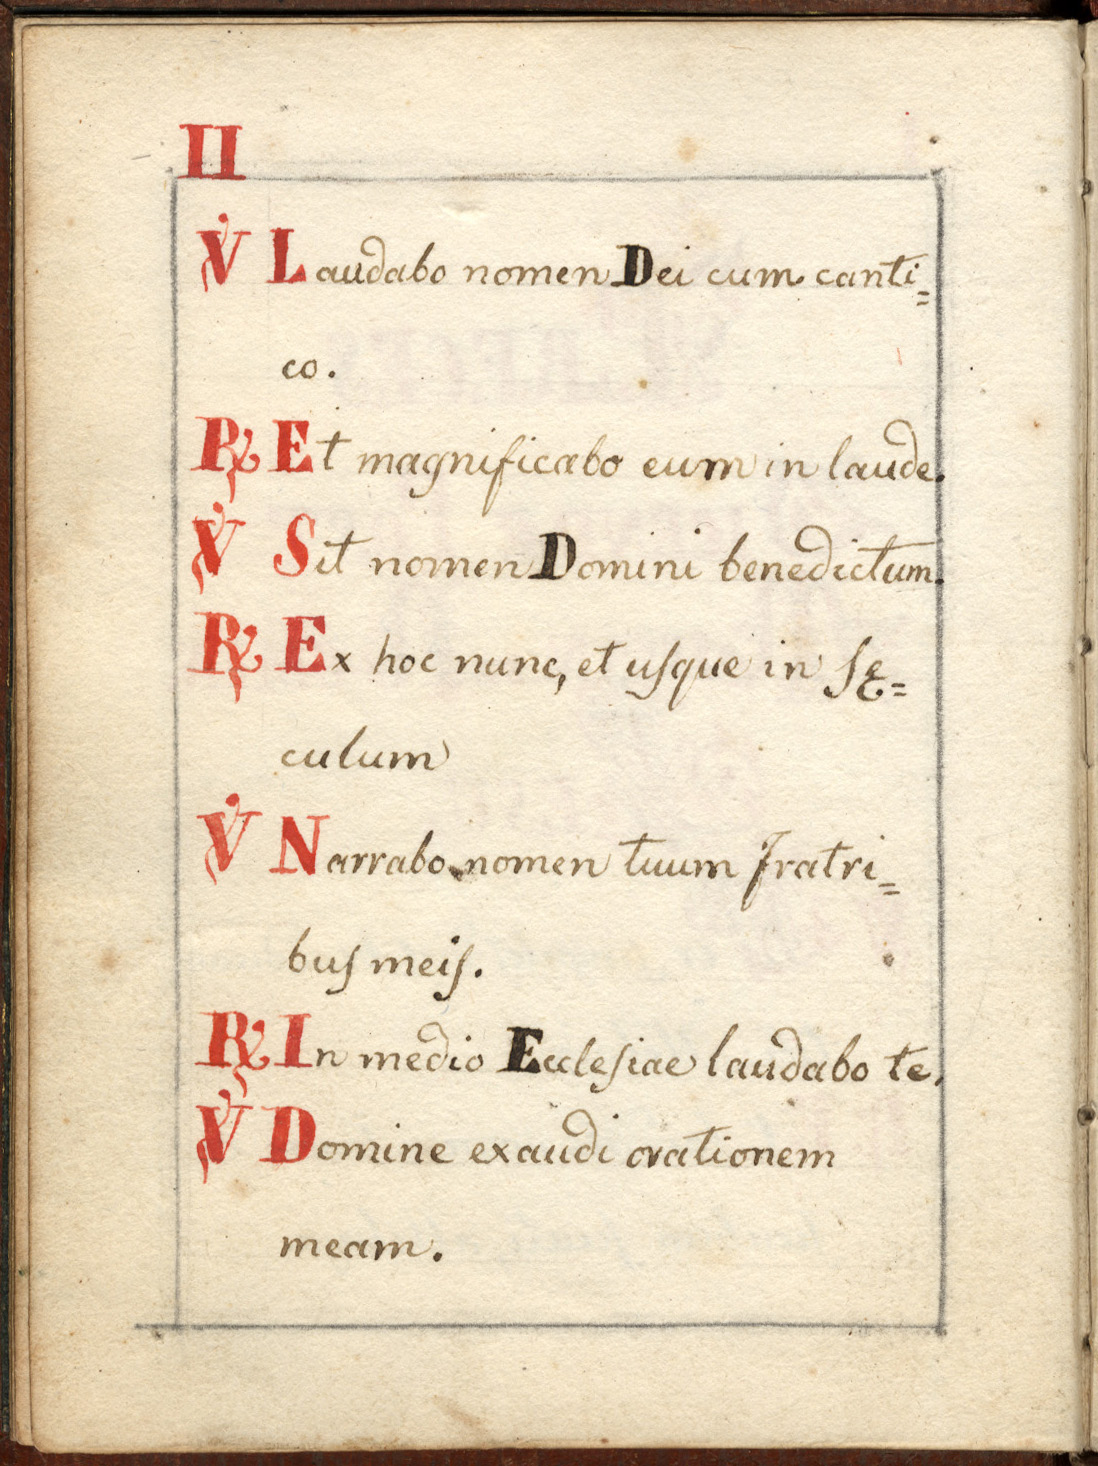 II
℣ Laudabo nomen Dei cum canti=
co.
℟ Et magnificabo eum in laude.
℣ Sit nomen Domini benedictum.
℟ Ex hoc nunc, et uſque in ſę=
culum
℣ Narrabo nomen tuum fratri=
buſ meiſ.
℟ In medio Eccleſiae laudabo te.
℣ Domine exaudi orationem
meam.